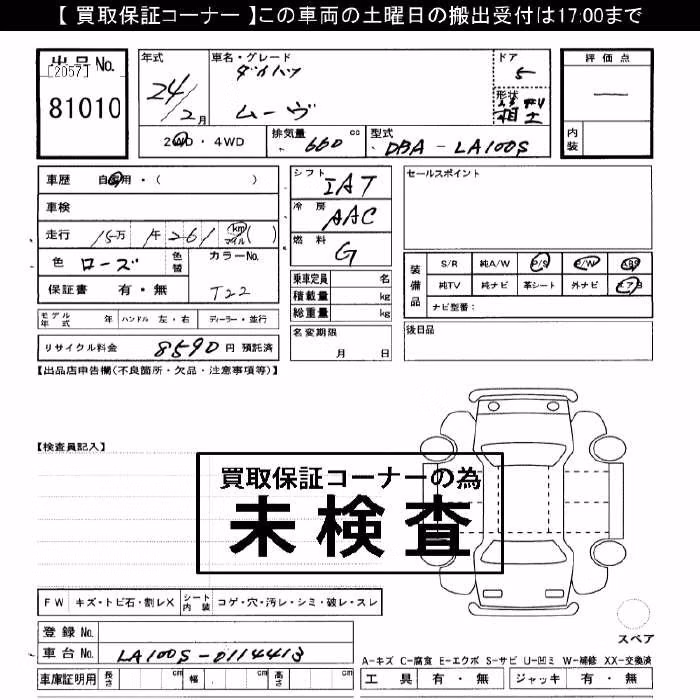 【 買取保証コーナー 】この車両の土曜日の搬出受付は17:00まで
出品No.
[2057]
81010
年式
24/2月
車名・グレード
ダイハツ
ムーヴ
ドア
5
形状
箱
2WD・4WD
排気量 660 cc
型式 DBA-LA100S
評価点
内装
車歴 自家用・( )
車検
走行 15万 1千 261 km マイル ( )
色 ローズ 色替
カラーNo. T22
保証書 有・無
シフト IAT
冷房 AAC
燃料 G
乗車定員 名
積載量 kg
総重量 kg
名変期限
月 日
セールスポイント
装備品
S/R 純A/W P/S P/W ABS
純TV 純ナビ 革シート 外ナビ エアB
ナビ型番:
後日品
モデル年式 年 ハンドル 左・右 ディーラー・並行
リサイクル料金 8590 円 預託済
【出品店申告欄(不良箇所・欠品・注意事項等)】
【検査員記入】
買取保証コーナーの為
未検査
FW キズ・トビ石・割レX シート内装 コゲ・穴・汚レ・シミ・破レ・スレ
スペア
登録No.
車台No. LA100S-0114413
車庫証明用 長さ cm 幅 cm 高さ cm
A-キズ C-腐食 E-エクボ S-サビ U-凹ミ W-補修 XX-交換済
工具 有・無 ジャッキ 有・無